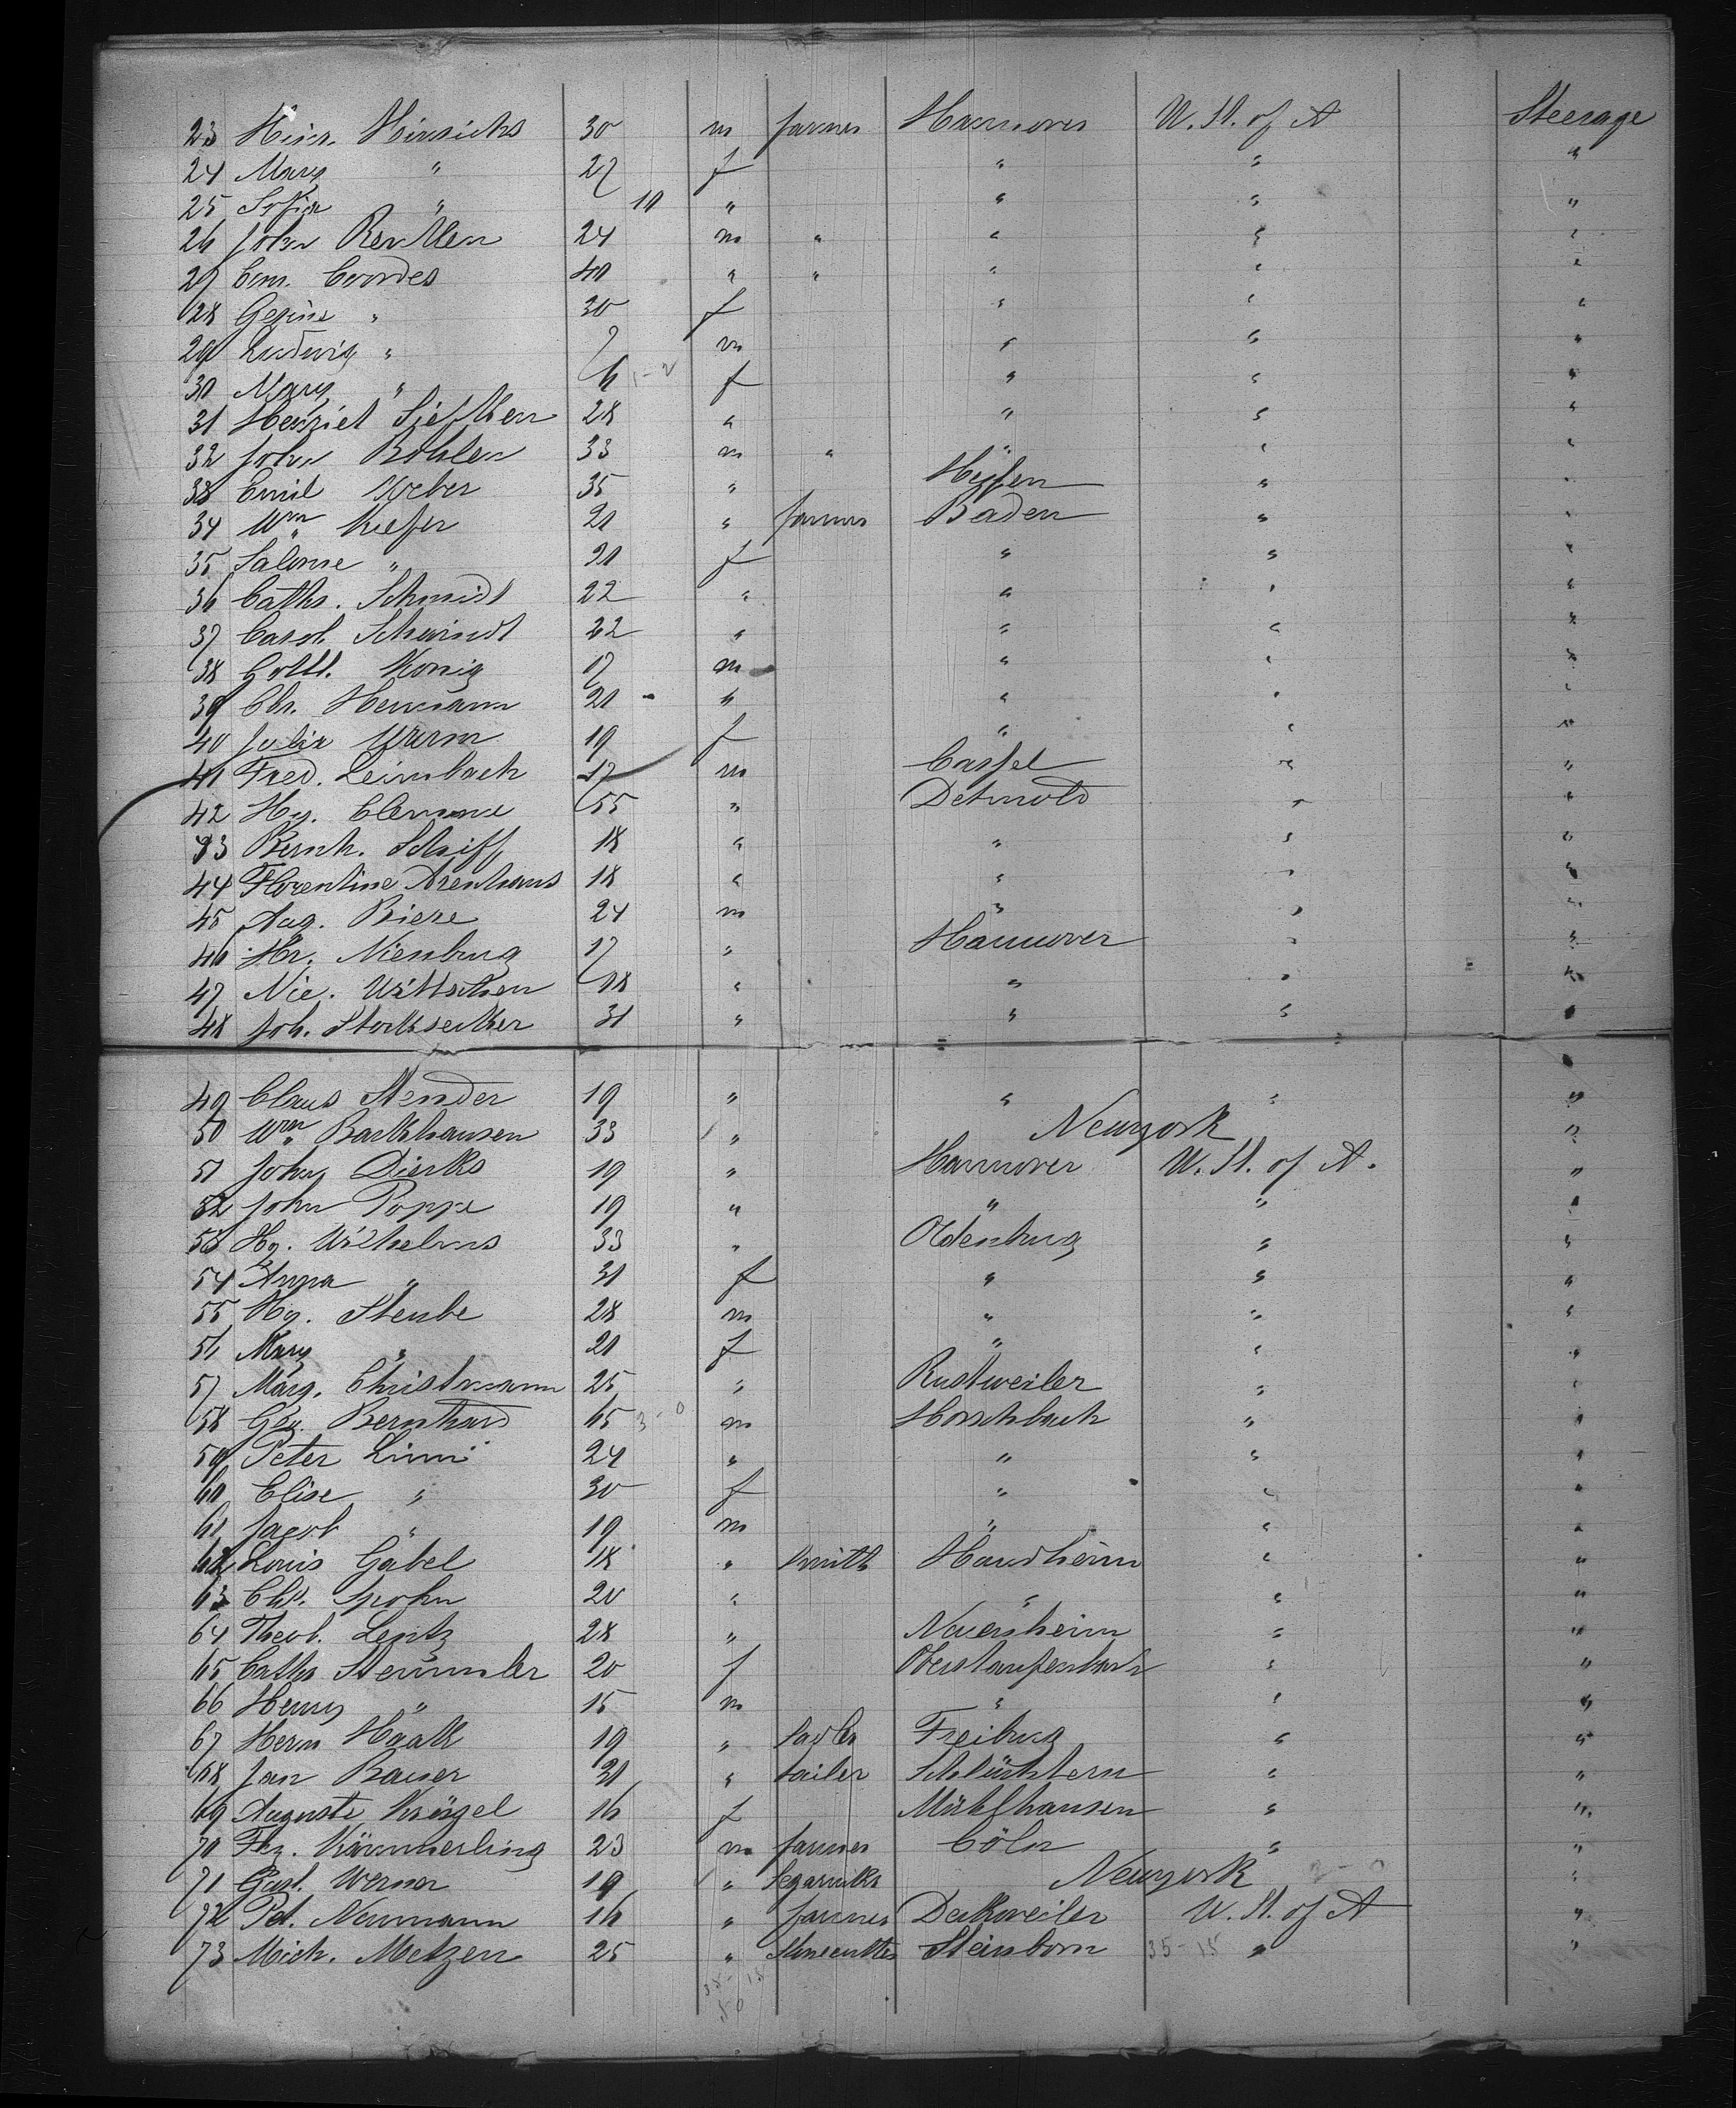 23 Hinr. Hinrichs 30 m farmer Hannover U. St. of A Steerage
24 Mary " 27 f " " "
25 Sofia " 10 " " " "
26 John Renken 24 m " " " "
27 Com. Coordes 40 " " " " "
28 Gesine " 30 f " " "
29 Ludwig " 7 m " " "
30 Mary " 6 f " " "
31 Henriet Siefken 28 " " " "
32 John Bohlen 33 m " " " "
33 Emil Weber 35 " Heßen " "
34 Wm Kiefer 21 " farmer Baden " "
35 Salome " 21 f " " "
36 Caths. Schmidt 22 " " " "
37 Carol. Schmidt 22 " " " "
38 Gottl. Konig 17 m " " "
39 Chr. Hermann 21 " " " "
40 Julia Wurm 19 f " " "
41 Fred. Leimbach 17 m Cassel " "
42 Hy. 55 " Detmold " "
43 Bernh. Schiff 18 " " " "
44 Florentine Arenhans 18 " " " "
45 Aug. Biere 24 m " " "
46 Hr. Nienburg 17 " Hannover " "
47 Nic. Wittschen 18 " " " "
48 Joh. 31 " " " "
49 Claus Stender 19 " " " "
50 Wm Barkhausen 33 " Newyork "
51 John Dierks 19 " Hannover U. St. of A. "
52 John Poppe 19 " " " "
53 Hy. Wilhelms 33 " Oldenburg " "
54 Anna " 31 f " " "
55 Hy. Steube 28 m " " "
56 Mary " 21 f " " "
57 Marg. Christmann 25 " Rustweiler " "
58 Geo. Bernhard 65 m Horschbach " "
59 Peter 24 " " " "
60 Elise " 30 f " " "
61 Jacob " 19 m " " "
62 Louis Gabel 18 " smith " "
63 Chr. Spohn 20 " " " "
64 Theob. Lentz 28 " " "
65 Caths Stemmler 20 f Oberstaufenbach " "
66 Henry " 15 m " " "
67 Herm Haak 19 " Sadler Freiburg " "
68 Jan Bauer 31 " tailer Schlüchtern " "
69 Auguste Krügel 16 f Mühlhausen " "
70 Frz. Kämmerling 23 m farmer Cöln " "
71 Gust. Werner 19 " Segarmkr Newyork "
72 Pet. Neumann 16 " farmer U. St. of A "
73 Mich. Metzen 25 " Stonecutter Steinborn 35-15 " "